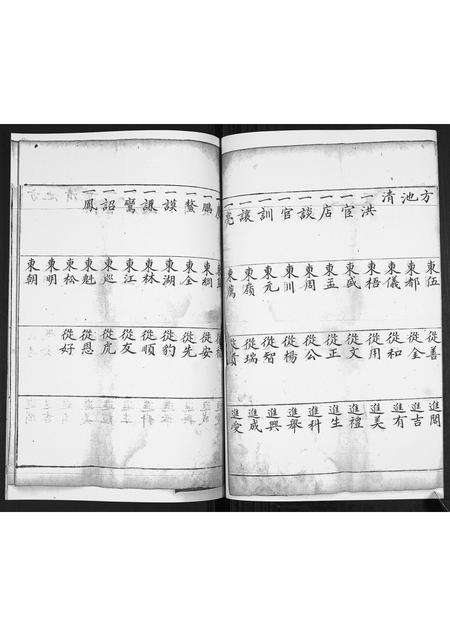 方池清 一洪 一官 一店 一談 一官 一訓 一讓 一亮
東伍 東都 東儀 東梧 東咸 東孟 東周 東川 東元 東嶺 東萬
從善 從金 從和 從用 從文 從正 從公 從楊 從智 從瑞
進閣 進吉 進有 進美 進禮 進生 進科 進舉 進興 進成 進愛
一鵬 一鰲 一謨 一謙 一鸞 一詔 一鳳
東桐 東金 東湖 東林 東江 東巡 東魁 東松 東明 東朝
從安 從先 從豹 從順 從友 從虎 從恩 從好